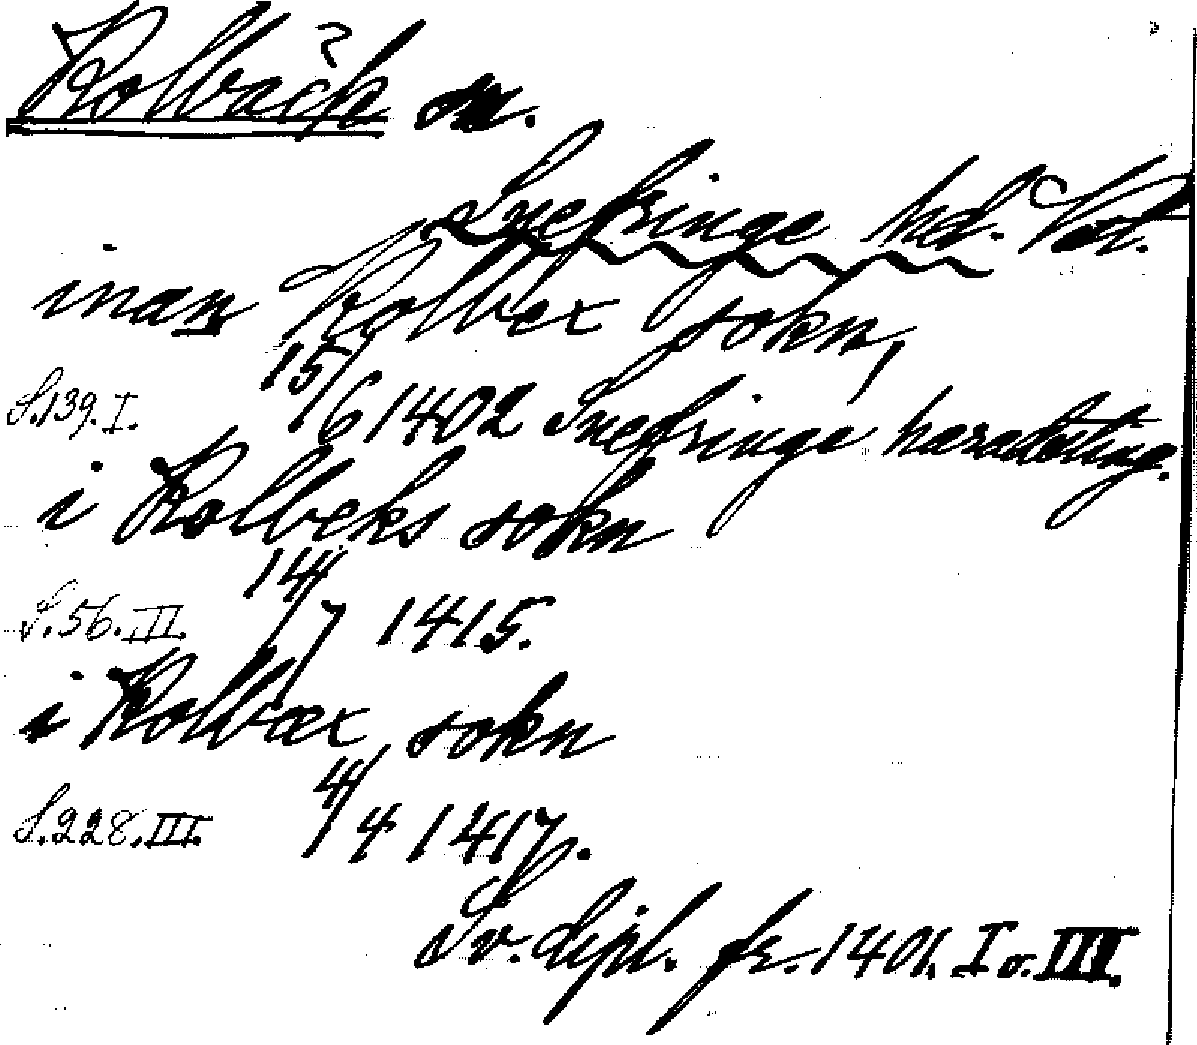 Kolbäck sn.
Snefringe hd. Vstm.
inan Kolbex sokn,
S.139.I. 15/6 1402 Snefringe hæradsting.
i Kolbeks sokn
S.56.III. 14/7 1415.
i Kolbæx sokn
S.228.III. 4/4 1417.
Sv. dipl. fr. 1401. I o. III.